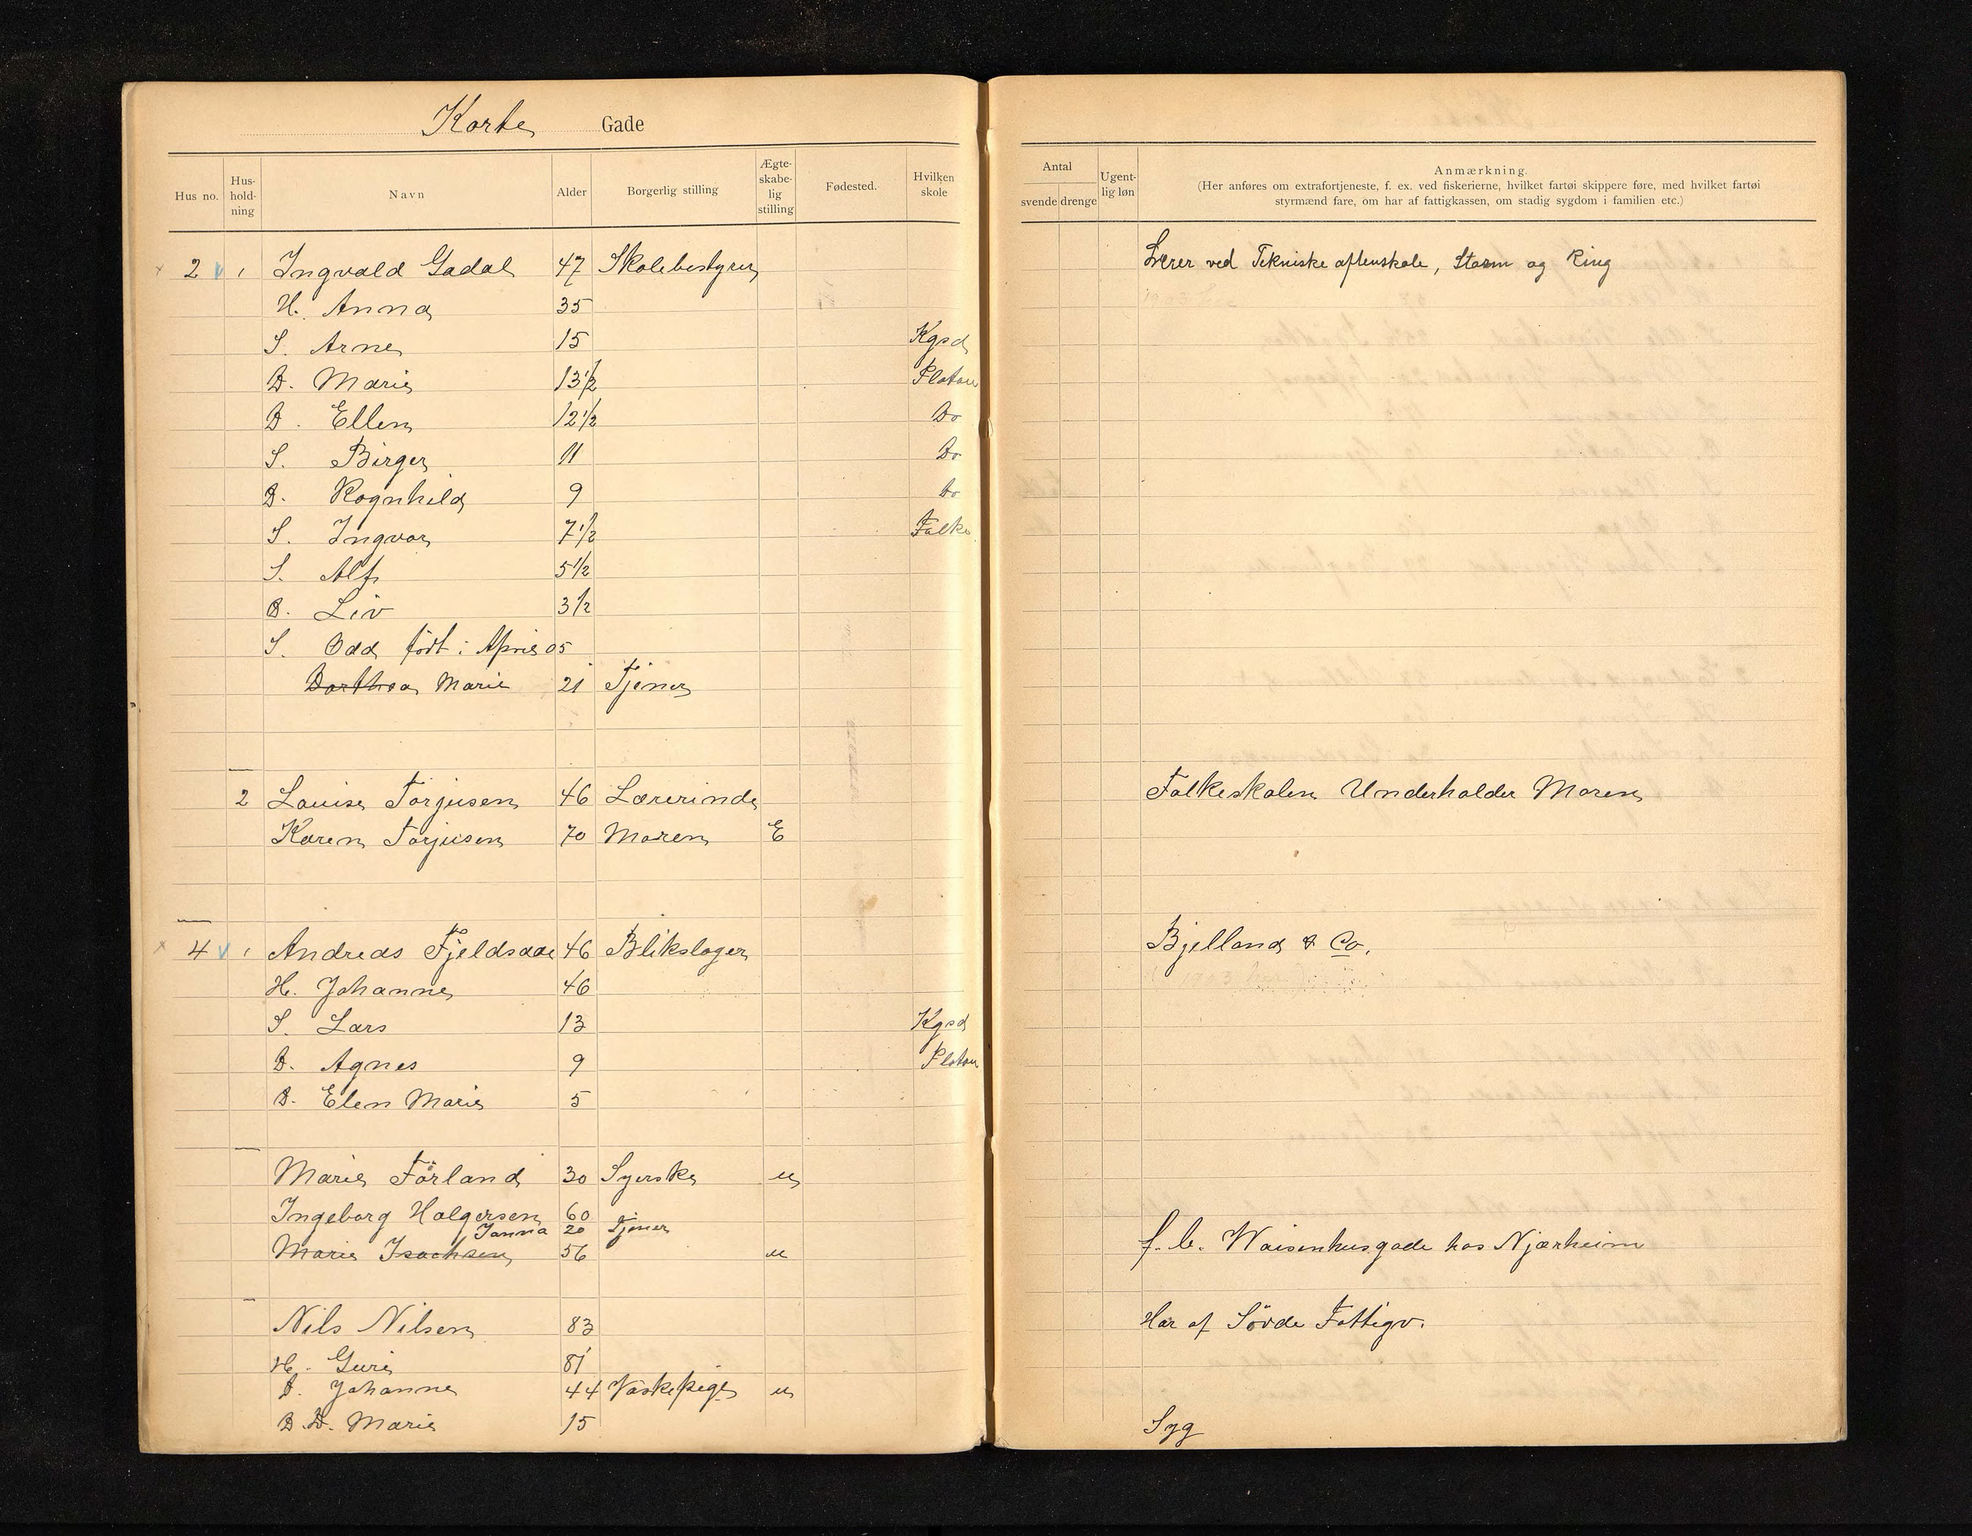 Korte Gade
Hus no. Hus-hold-ning Navn Alder Borgerlig stilling Ægte-skabe-lig stilling Fødested. Hvilken skole Antal svende drenge Ugent-lig løn Anmærkning.
(Her anføres om extrafortjeneste, f. ex. ved fiskerierne, hvilket fartøi skippere føre, med hvilket fartøi
styrmænd fare, om har af fattigkassen, om stadig sygdom i familien etc.)
2 1 Ingvald Gadal 47 Skolebestyrer Lærer ved Tekniske aftenskole, Storm og Ring
H. Anna 35
S. Arne 15 Kgsd
D. Marie 13 1/2 Platou
D. Ellen 12 1/2 Do
S. Birger 11 Do
D. Ragnhild 9 Do
S. Ingvar 7 1/2 Folke
S. Alf 5 1/2
D. Liv 3 1/2
S. Odd født i April 05
Dorthea Marie 21 Tjener
2 Louise Torjusen 46 Lærerinde Folkeskolen Underholder Moren
Karen Torjusen 70 Moren E
4 1 Andreas Fjeldsaae 46 Blikslager Bjelland & Co.
H. Johanne 46
S. Lars 13 Kgsd
D. Agnes 9 Platou
D. Elen Marie 5
Marie Förland 30 Syerske u
Ingeborg Holgersen 60
Janna 20 Tjener
Marie Isachsen 56 u f. b. Waisenhusgade hos Njærheim
Nils Nilsen 83 Har af Søvde Fattigv.
H. Guri 81
D. Johanne 44 Vaskepige u
D. D. Marie 15 Syg